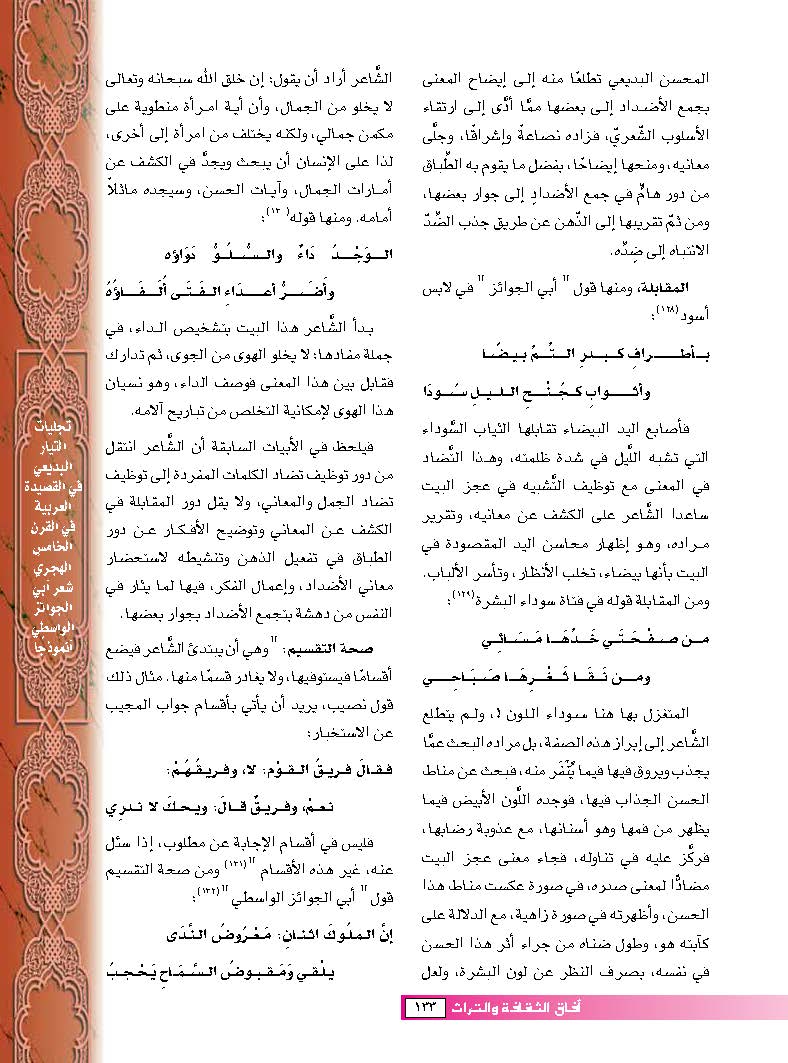 المحسن البديعي تطلعًا منه إلى إيضاح المعنى
بجمع الأضداد إلى بعضها ممَّا أدَّى إلى ارتقاء
الأسلوب الشّعريّ، فزاده نصاعةً وإشراقًا، وجلَّى
معانيه، ومنحها إيضاحًا، بفضل ما يقوم به الطِّباق
من دور هامٍّ في جمع الأضدادِ إلى جوار بعضها،
ومن ثمّ تقريبها إلى الذّهن عن طريق جذب الضِّدّ
الانتباه إلى ضِدِّه.
المقابلة، ومنها قول " أبي الجوائز " في لابس
أسود(١٢٨):
بـأطـراف كـبـدرِ الـتُـمِّ بـيـضًـا
وأثـوابٍ كـجُـنْـحِ الـلـيـلِ سُـودَا
فأصابع اليد البيضاء تقابلها الثياب السَّوداء
التي تشبه اللَّيل في شدة ظلمته، وهذا التَّضاد
في المعنى مع توظيف التَّشبيه في عجز البيت
ساعدا الشَّاعر على الكشف عن معانيه، وتقرير
مراده، وهو إظهار محاسن اليد المقصودة في
البيت بأنها بيضاء، تخلب الأنظار، وتأسر الألباب.
ومن المقابلة قوله في فتاة سوداء البشرة(١٢٩):
مـن صـفْـحَـتَـي خَـدِّهَـا مَـسَـائِـي
ومـن نَـقَـا ثَـغْـرِهَـا صَـبَـاحِـي
المتغزل بها هنا سوداء اللون !، ولم يتطلع
الشَّاعر إلى إبراز هذه الصفة، بل مراده البحث عمَّا
يجذب ويروق فيها فيما يُنَّفَر منه، فبحث عن مناط
الحسن الجذاب فيها، فوجده اللَّون الأبيض فيما
يظهر من فمها وهو أسنانها، مع عذوبة رضابها،
فركَّز عليه في تناوله، فجاء معنى عجز البيت
مضادًّا لمعنى صدره، في صورة عكست مناط هذا
الحسن، وأظهرته في صورة زاهية، مع الدلالة على
كآبته هو، وطول ضناه من جراء أثر هذا الحسن
في نفسه، بصرف النظر عن لون البشرة، ولعل
الشَّاعر أراد أن يقول: إن خلق الله سبحانه وتعالى
لا يخلو من الجمال، وأن أية امرأة منطوية على
مكمن جمالي، ولكنه يختلف من امرأة إلى أخرى،
لذا على الإنسان أن يبحث ويجدَّ في الكشف عن
أمارات الجمال، وآيات الحسن، وسيجده ماثلاً
أمامه. ومنها قوله(١٣٠):
الـوَجْـدُ دَاءٌ والـسُّـلُـوُّ دَوَاؤه
وأَضَـرُّ أعـدَاءِ الـفَـتَـى أُلَـفَـاؤُهُ
بدأ الشَّاعر هذا البيت بتشخيص الداء، في
جملة مفادها: لا يخلو الهوى من الجوى، ثم تدارك
فقابل بين هذا المعنى فوصف الداء، وهو نسيان
هذا الهوى لإمكانية التخلص من تباريح آلامه.
فيلحظ في الأبيات السابقة أن الشَّاعر انتقل
من دور توظيف تضاد الكلمات المفردة إلى توظيف
تضاد الجمل والمعاني، ولا يقل دور المقابلة في
الكشف عن المعاني وتوضيح الأفكار عن دور
الطباق في تفعيل الذهن وتنشيطه لاستحضار
معاني الأضداد، وإعمال الفكر، فيها لما يثار في
النفس من دهشة بتجمع الأضداد بجوار بعضها.
صحة التقسيم: " وهي أن يبتدئ الشَّاعر فيضع
أقسامًا فيستوفيها، ولا يغادر قسمًا منها. مثال ذلك
قول نصيب، يريد أن يأتي بأقسام جواب المجيب
عن الاستخبار:
فـقـالَ فـريـقُ الـقـوْمِ: لا، وفـريـقُـهُـمْ:
نـعـمْ، وفـريـقٌ قـالَ: ويـحـكَ لا نـدرِي
فليس في أقسام الإجابة عن مطلوب، إذا سئل
عنه، غير هذه الأقسام "(١٣١) ومن صحة التقسيم
قول " أبي الجوائز الواسطي "(١٣٢):
إنَّ الـمـلُـوكَ اثـنـانِ: مَـعْـرُوضُ الـنَّـدَى
يـلْـقـي وَمَـقـبـوضُ الـسَّـمَـاحِ يَـحْـجـبُ
تجليات
التيار
البديعي
في القصيدة
العربية
في القرن
الخامس
الهجري
شعر أبي
الجوائز
الواسطي
أنموذجا
آفاق الثقافة والتراث ١٣٣